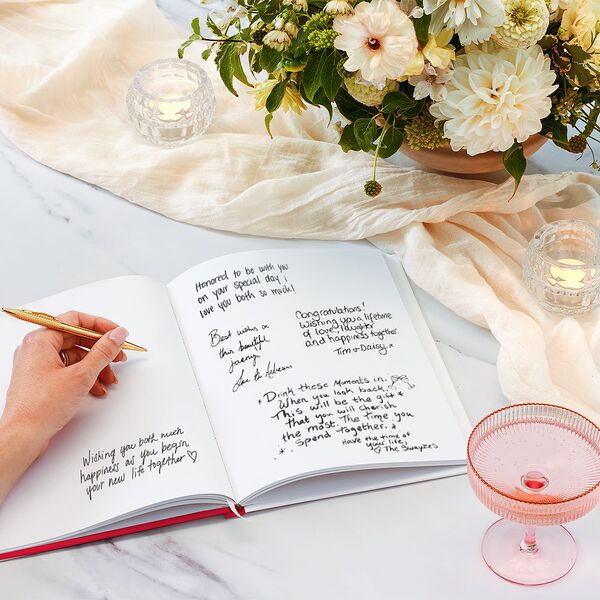 Wishing you both much
happiness as you begin
your new life together ♡
Honored to be with you
on your special day!
love you both so much!
Congratulations!
Wishing you a lifetime
of love, laughter
and happiness together.
Tim + Daisy
Best wishes on
this beautiful
Drink these Moments in.
When you look back,
This will be the gift
that you will cherish
the most. The time you
Spend together.
Have the time of
your life,
♡ The Swayzes